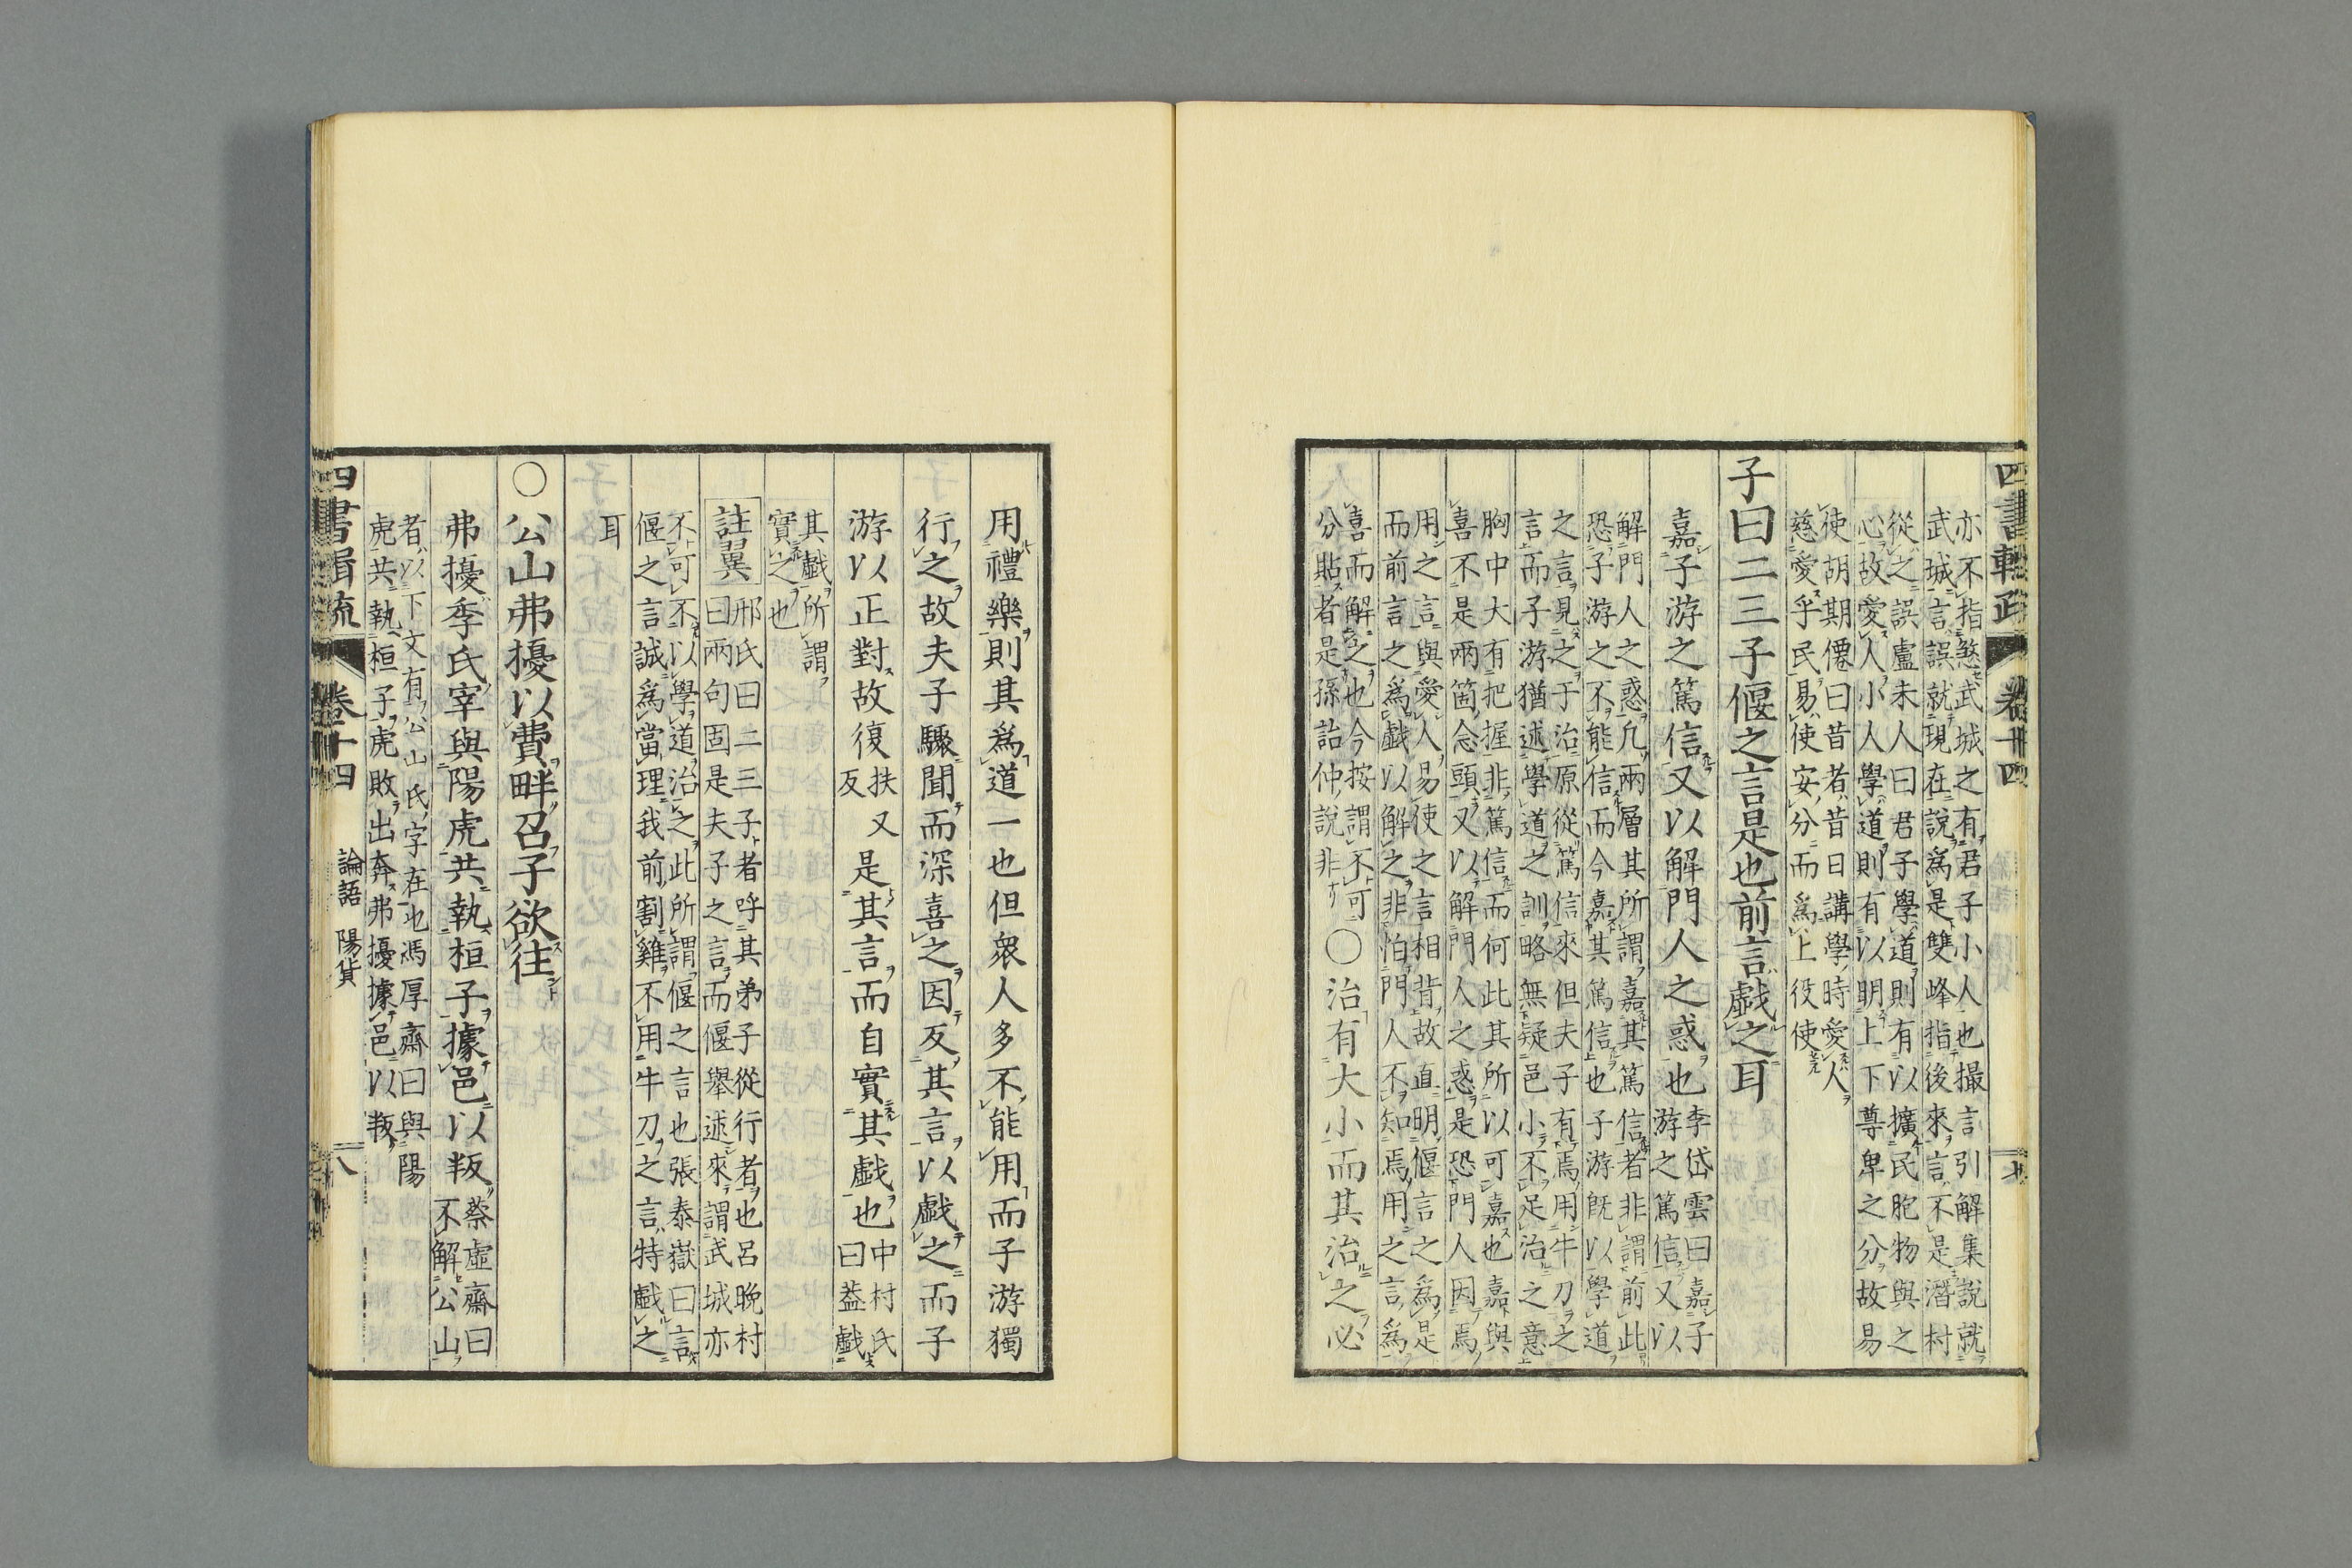 亦不指煞武城之有君子小人也撮言引解集說就
武城言誤就現在說爲是雙峰指後來言不是潛村
從之誤盧未人曰君子學道則有以擴民胞物與之
心故愛人小人學道則有以明上下尊卑之分故易
使胡期僊曰昔者昔日講學時愛人
慈愛乎民易使安分而爲上役使
子曰二三子偃之言是也前言戲之耳
嘉子游之篤信又以解門人之惑也
李岱雲曰嘉子
游之篤信又以
解門人之惑凢兩層其所謂嘉其篤信者非謂前此
恐子游之不能信而今嘉其篤信也子游旣以學道
之言見之于治原從篤信來但夫子有焉用牛刀之
言而子游猶述學道之訓略無疑邑小不足治之意
胸中大有把握非篤信而何此其所以可嘉也嘉與
喜不是兩箇念頭又以解門人之惑是恐門人因焉
用之言與愛人易使之言相背故直明偃言之爲是
而前言之爲戲以解之非怕門人不知焉用之言爲
喜而解之也今按謂不可
分貼者是孫詒仲說非
〇治有大小而其治之必
四書輯疏
卷十四
七
用禮樂則其爲道一也但衆人多不能用而子游獨
行之故夫子驟聞而深喜之因反其言以戲之而子
游以正對故復
扶又
反
是其言而自實其戲也
中村氏
曰葢戲
其戲所謂
實之也
註翼
邢氏曰二三子者呼其弟子從行者也呂晚村
曰兩句固是夫子之言而偃舉述來謂武城亦
不可不以學道治之此所謂偃之言也張泰嶽曰言
偃之言誠爲當理我前割雞不用牛刀之言特戲之
耳
〇公山弗擾以費畔召子欲往
弗擾季氏宰與陽虎共執桓子據邑以叛
蔡虛齋曰
不解公山
者以下文有公山氏字在也馮厚齋曰與陽
虎共執桓子虎敗出奔弗擾據邑以叛
四書輯疏
卷十四
論語 陽貨
八